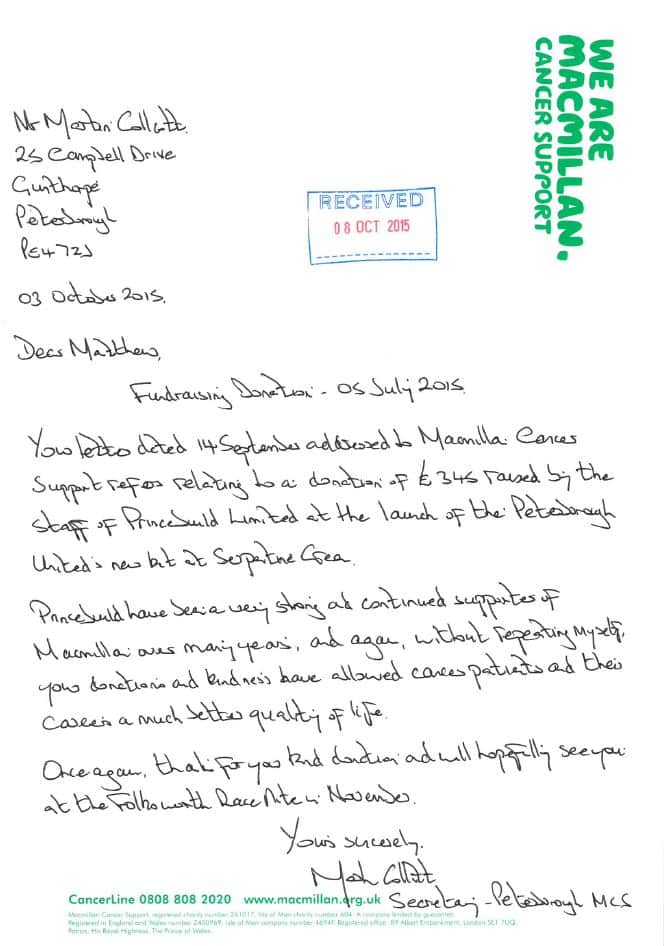 WE ARE
MACMILLAN.
CANCER SUPPORT
Mr Martin Collett
25 Campbell Drive
Gunthorpe
Peterborough
PE4 7ZJ
RECEIVED
08 OCT 2015
03 October 2015.
Dear Matthew,
Fundraising Donation - 05 July 2015.
Your letter dated 14 September addressed to Macmillan Cancer
Support refers relating to a donation of £345 raised by the
staff of Princebuild Limited at the launch of the Peterborough
United's new kit at Serpentine Green.
Princebuild have been a very strong and continued supporter of
Macmillan over many years, and again, without repeating myself,
your donations and kindness have allowed cancer patients and their
carers a much better quality of life.
Once again, thank for your kind donation and will hopefully see you
at the Folksworth Race Nite in November.
Yours sincerely.
Collett
Secretary - Peterborough MCS
CancerLine 0808 808 2020 www.macmillan.org.uk
Macmillan Cancer Support, registered charity number 261017, Isle of Man charity number 604. A company limited by guarantee.
Registered in England and Wales number 2400969. Isle of Man company number 4694F. Registered office: 89 Albert Embankment, London SE1 7UQ.
Patron, His Royal Highness, The Prince of Wales.